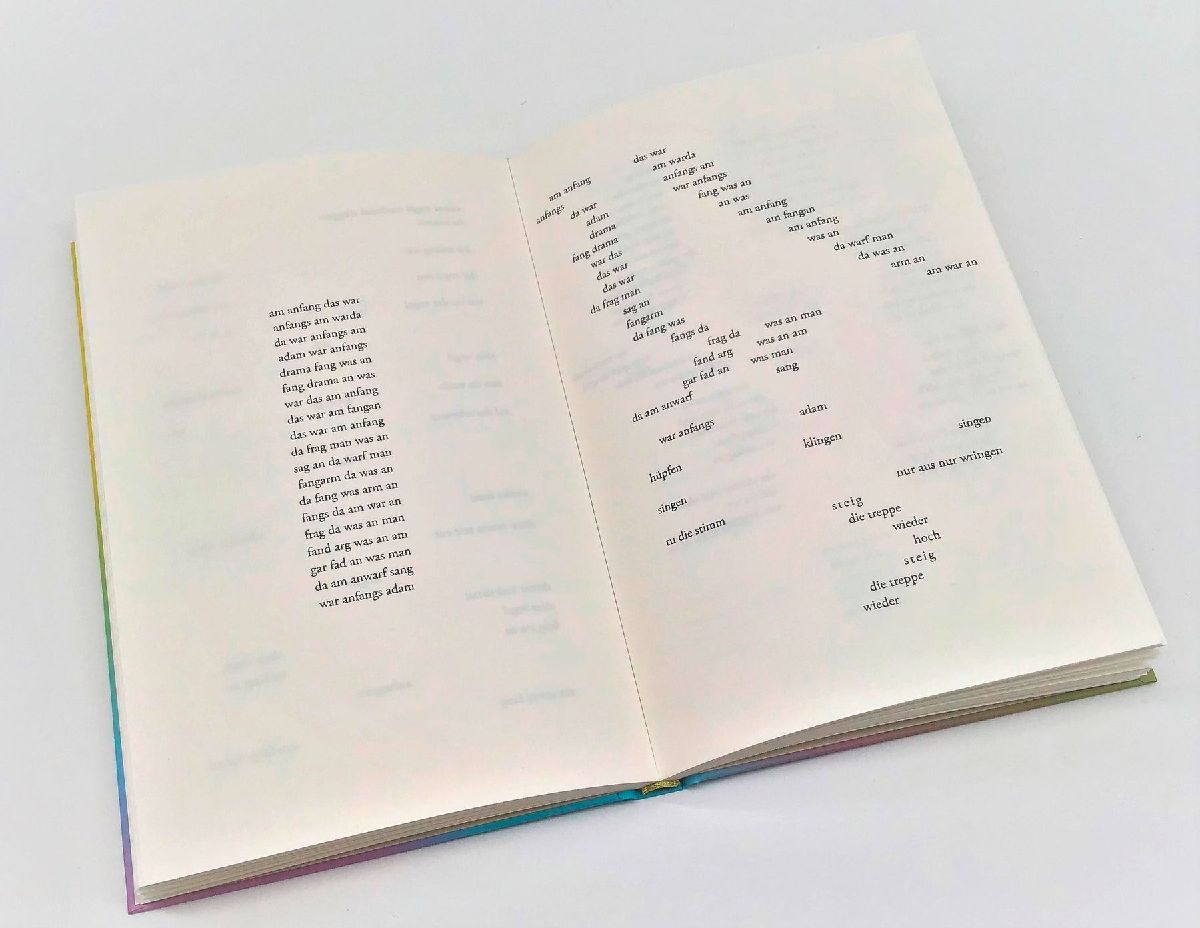 am anfang das war
anfangs am warda
da war anfangs am
adam war anfangs
drama fang was an
fang drama an was
war das am anfang
das war am fangan
das war am anfang
da frag man was an
sag an da warf man
fangarm da was an
da fang was arm an
fangs da am war an
frag da was an man
fand arg was an am
gar fad an was man
da am anwarf sang
war anfangs adam
am anfang das war
anfangs am warda
da war anfangs am
adam war anfangs
drama fang was an
fang drama an was
war das am anfang
das war am fangan
das war am anfang
da frag man was an
sag an da warf man
fangarm da was an
da fang was arm an
fangs da am war an
frag da was an man
fand arg was an am
gar fad an was man
da am anwarf sang
war anfangs adam
hüpfen klingen singen
singen nur aus nur wringen
zu die stimm steig
die treppe
wieder
hoch
steig
die treppe
wieder